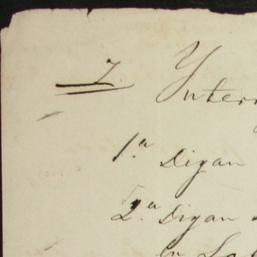 7. Ynterr
1.ª Digan
2.ª Digan
en